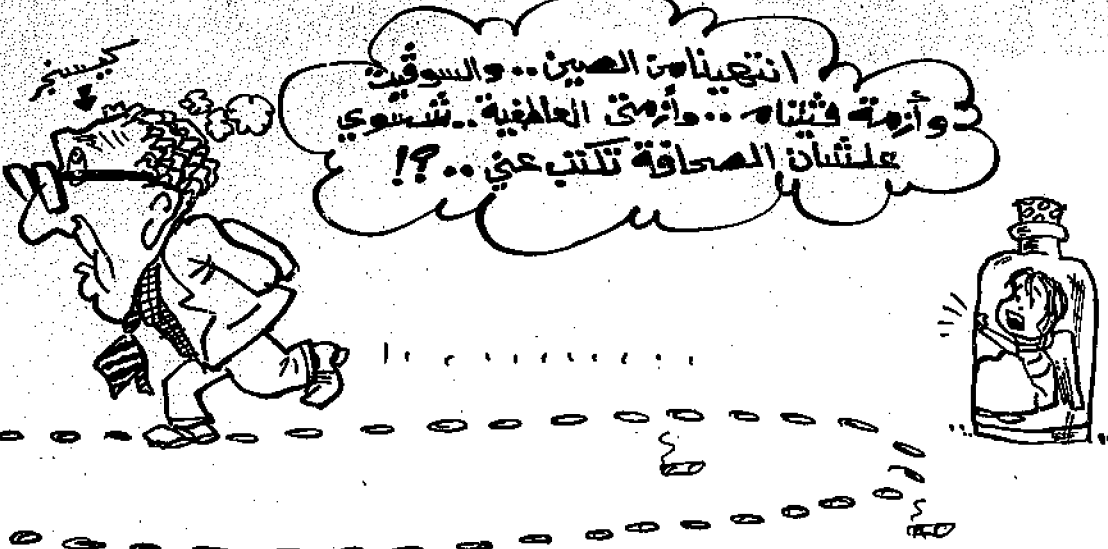 كيسنجر
انتهينا من الصين.. والسوڤيت
وأزمة ڤيتنام.. وأزمتى العاطفية.. شسوي
علشان الصحافة تكتب عني..؟!